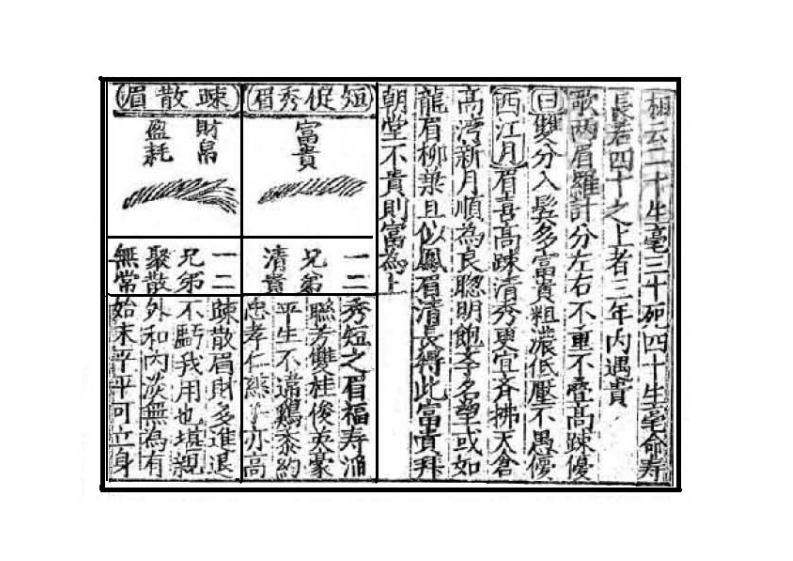 相云二十生毫三十死四十生毫命寿
長若四十之上者三年内遇貴
歌兩眉羅計分左右不重不叠高疎優
曰雙分入鬂多富貴粗濃低壓不愚㑳
西江月眉喜高疎清秀更宜斉拂天倉
高湾新月順為良聡明飽孝名望或如
龍眉柳葉且似鳳眉清長得此富貴拜
朝堂不貴則富為上
短促秀眉
富貴
一二
兄弟
清貴
秀短之眉福寿
聯芳雙桂俊英豪
平生不違鷄黍約
忠孝仁慈亦高
疎散眉
財帛
盈耗
一二
兄弟
聚散
無常
疎散眉財多進退
不虧我用也填親
外和内淡無為有
始末平平可立身